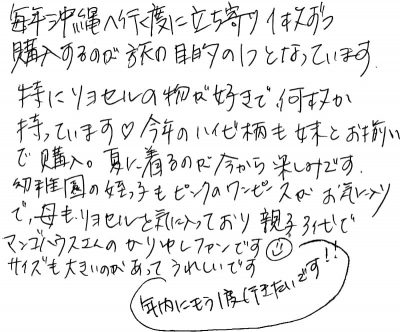 毎年沖縄へ行く度に立ち寄り1枚ずつ
購入するのが旅の目的の1つとなっています。
特にリヨセルの物が好きで、何枚か
持っています♡今年のハイビ柄も妹とお揃い
で購入。夏に着るのが今から楽しみです。
幼稚園の姪っ子もピンクのワンピースがお気に入り
で、母もリヨセルを気に入っており親子3代で
マンゴハウスさんのかりゆしファンです☺
サイズも大きいのがあってうれしいです
年内にもう1度行きたいです!!